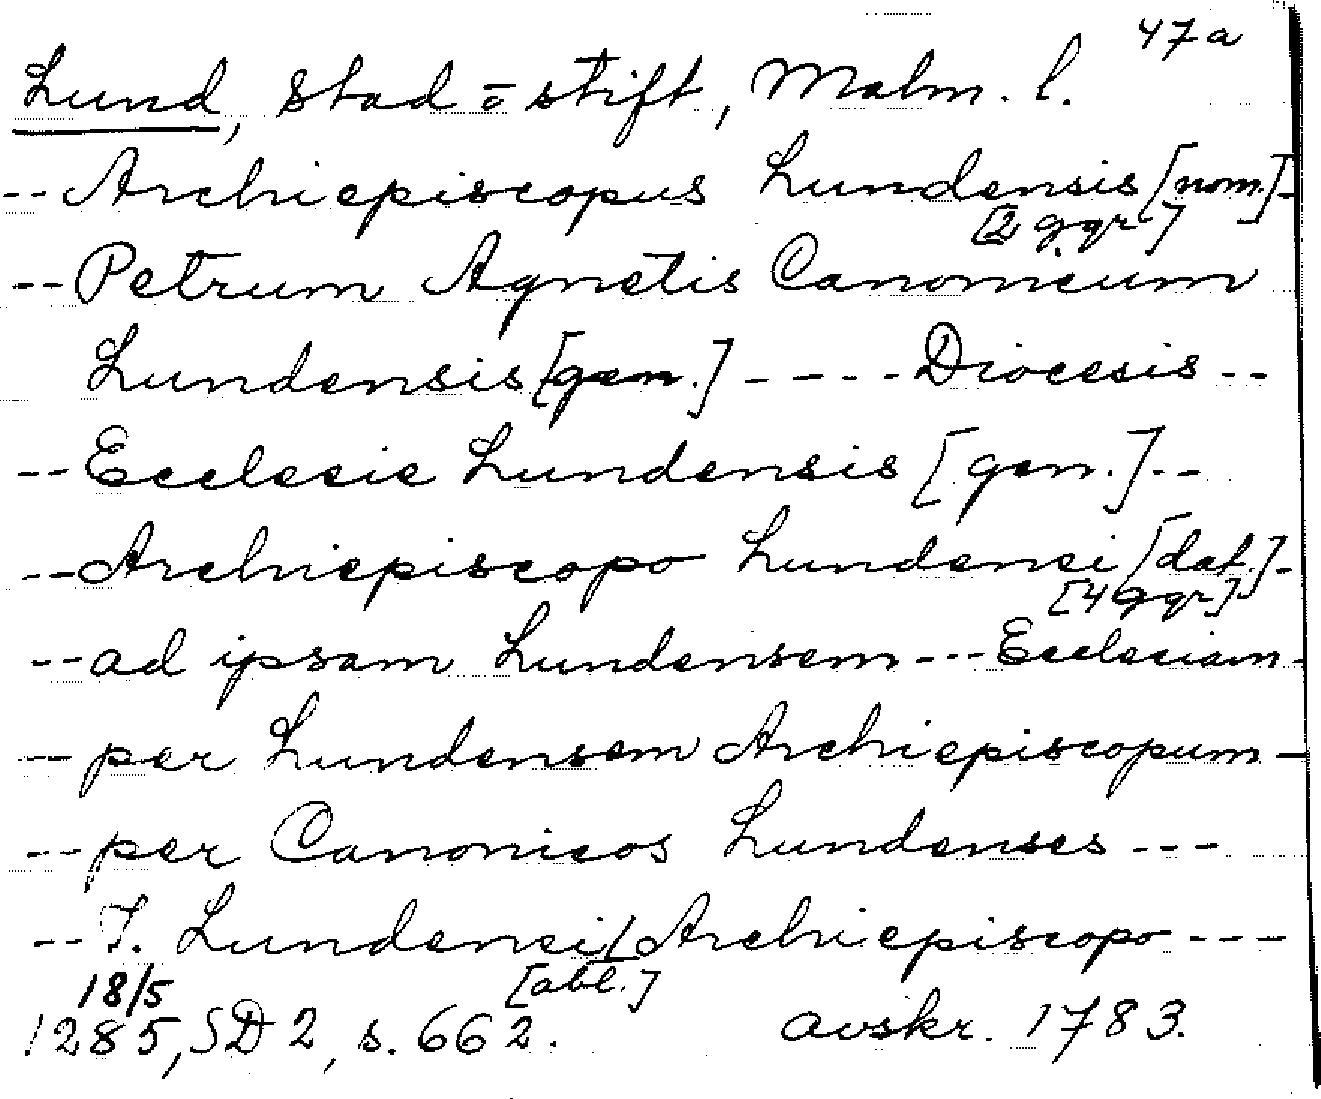 47a
Lund, stad o stift, Malm. l.
-- Archiepiscopus Lundensis [nom.] -
[2 ggr]
-- Petrum Agnetis Canonicum
Lundensis [gen.] ---- Diocesis --
-- Ecclesie Lundensis [gen.] --
-- Archiepiscopo Lundensi [dat.] -
[4 ggr]
-- ad ipsam Lundensem --- Ecclesiam -
-- per Lundensem Archiepiscopum -
-- per Canonicos Lundenses ---
-- T. Lundensi/ Archiepiscopo ---
18/5 [abl.]
1285, SD 2, s. 662. avskr. 1783.